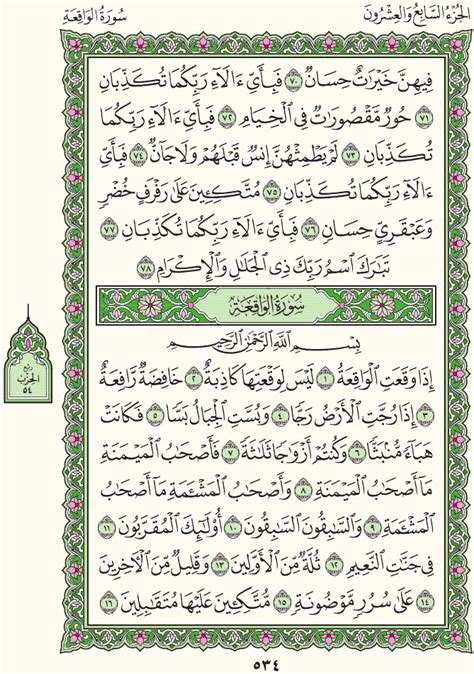 الجزء السابع والعشرون
سورة الواقعة
فِيهِنَّ خَيْرَٰتٌ حِسَانٌ ٧٠ فَبِأَيِّ ءَالَآءِ رَبِّكُمَا تُكَذِّبَانِ
٧١ حُورٌ مَّقْصُورَٰتٌ فِي ٱلْخِيَامِ ٧٢ فَبِأَيِّ ءَالَآءِ رَبِّكُمَا
تُكَذِّبَانِ ٧٣ لَمْ يَطْمِثْهُنَّ إِنسٌ قَبْلَهُمْ وَلَا جَآنٌّ ٧٤ فَبِأَيِّ
ءَالَآءِ رَبِّكُمَا تُكَذِّبَانِ ٧٥ مُتَّكِـِٔينَ عَلَىٰ رَفْرَفٍ خُضْرٍ
وَعَبْقَرِيٍّ حِسَانٍ ٧٦ فَبِأَيِّ ءَالَآءِ رَبِّكُمَا تُكَذِّبَانِ ٧٧
تَبَٰرَكَ ٱسْمُ رَبِّكَ ذِي ٱلْجَلَٰلِ وَٱلْإِكْرَامِ ٧٨
سورة الواقعة
بِسْمِ ٱللَّهِ ٱلرَّحْمَٰنِ ٱلرَّحِيمِ
إِذَا وَقَعَتِ ٱلْوَاقِعَةُ ١ لَيْسَ لِوَقْعَتِهَا كَاذِبَةٌ ٢ خَافِضَةٌ رَّافِعَةٌ
٣ إِذَا رُجَّتِ ٱلْأَرْضُ رَجًّا ٤ وَبُسَّتِ ٱلْجِبَالُ بَسًّا ٥ فَكَانَتْ
هَبَآءً مُّنۢبَثًّا ٦ وَكُنتُمْ أَزْوَٰجًا ثَلَٰثَةً ٧ فَأَصْحَٰبُ ٱلْمَيْمَنَةِ
مَآ أَصْحَٰبُ ٱلْمَيْمَنَةِ ٨ وَأَصْحَٰبُ ٱلْمَشْـَٔمَةِ مَآ أَصْحَٰبُ
ٱلْمَشْـَٔمَةِ ٩ وَٱلسَّٰبِقُونَ ٱلسَّٰبِقُونَ ١٠ أُو۟لَٰٓئِكَ ٱلْمُقَرَّبُونَ ١١
فِي جَنَّٰتِ ٱلنَّعِيمِ ١٢ ثُلَّةٌ مِّنَ ٱلْأَوَّلِينَ ١٣ وَقَلِيلٌ مِّنَ ٱلْءَاخِرِينَ
١٤ عَلَىٰ سُرُرٍ مَّوْضُونَةٍ ١٥ مُّتَّكِـِٔينَ عَلَيْهَا مُتَقَٰبِلِينَ ١٦
ربع
الحزب
٥٤
٥٣٤